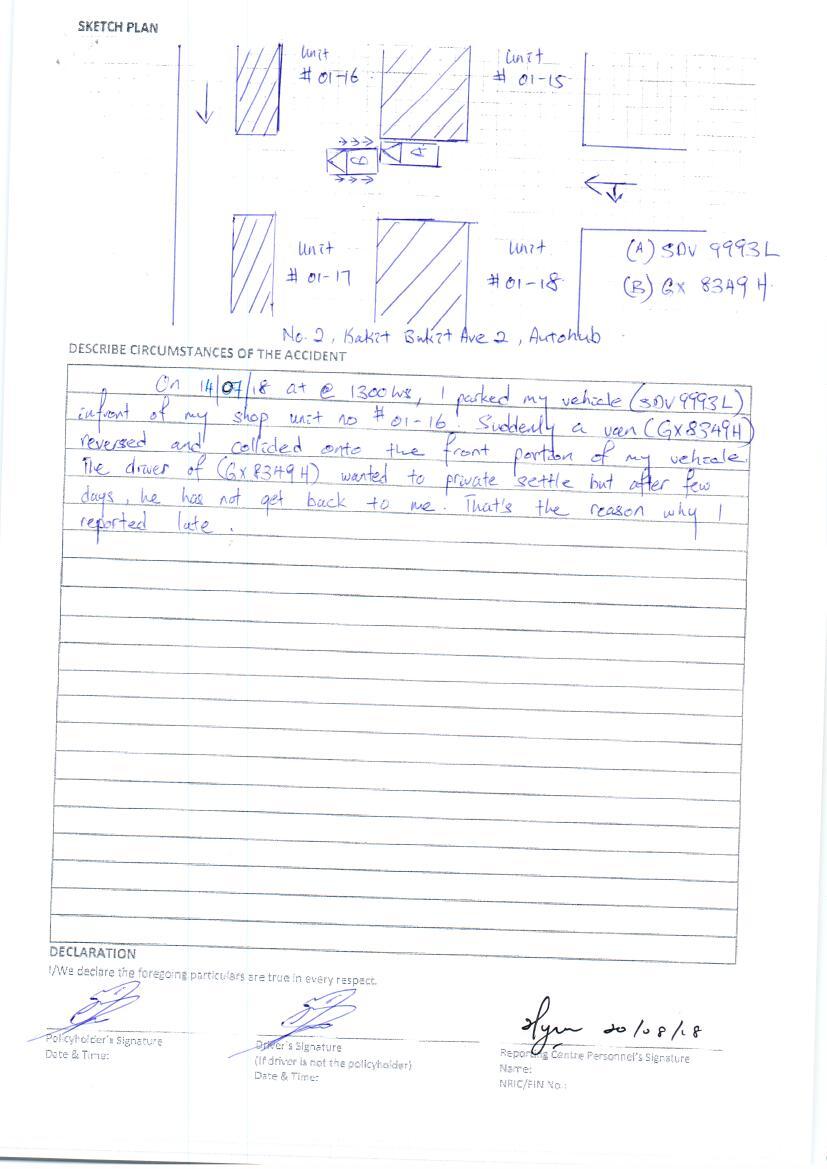 SKETCH PLAN
Unit
# 01-16
Unit
# 01-15
B
A
Unit
# 01-17
Unit
# 01-18
(A) SDV 9993L
(B) GX 8349 H
No. 2, Kakit Bukit Ave 2, Autohub
DESCRIBE CIRCUMSTANCES OF THE ACCIDENT
On 14/07/18 at @ 1300hrs, I parked my vehicle (SDV 9993L)
infront of my shop unit no # 01-16. Suddenly a van (GX8349H)
reversed and collided onto the front portion of my vehicle.
The driver of (GX8349H) wanted to private settle but after few
days, he has not get back to me. That's the reason why I
reported late.
DECLARATION
I/We declare the foregoing particulars are true in every respect.
20/08/18
Policyholder's Signature
Date & Time:
Driver's Signature
(If driver is not the policyholder)
Date & Time:
Reporting Centre Personnel's Signature
Name:
NRIC/FIN No.: